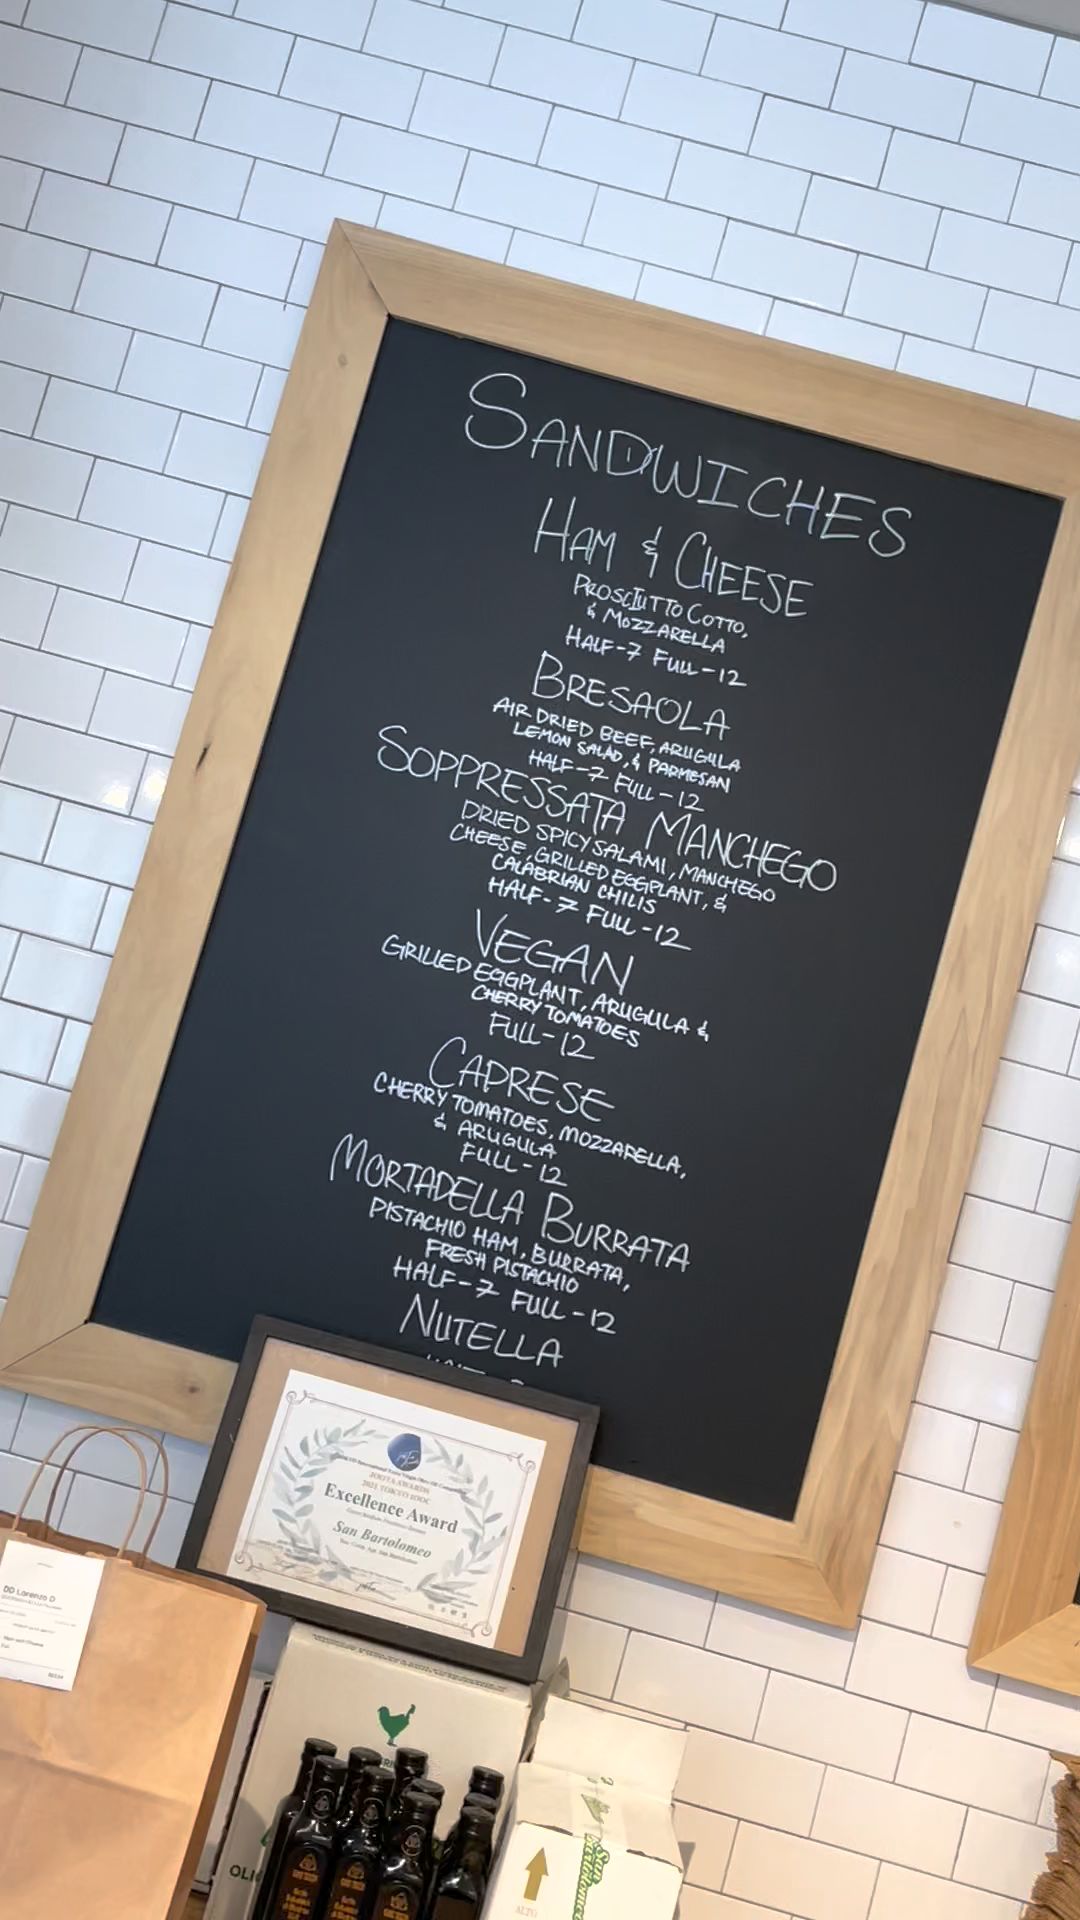 SANDWICHES
HAM & CHEESE
PROSCIUTTO COTTO,
& MOZZARELLA
HALF-7 FULL-12
BRESAOLA
AIR DRIED BEEF, ARUGULA
LEMON SALAD, & PARMESAN
HALF-7 FULL-12
SOPPRESSATA MANCHEGO
DRIED SPICY SALAMI, MANCHEGO
CHEESE, GRILLED EGGPLANT, &
CALABRIAN CHILIS
HALF-7 FULL-12
VEGAN
GRILLED EGGPLANT, ARUGULA &
CHERRY TOMATOES
FULL-12
CAPRESE
CHERRY TOMATOES, MOZZARELLA,
& ARUGULA
FULL-12
MORTADELLA BURRATA
PISTACHIO HAM, BURRATA,
FRESH PISTACHIO
HALF-7 FULL-12
NUTELLA
AWARDS
2021 TOKYO
Excellence Award
San Bartolomeo
DD Lorenzo D
ALTO
San
Bartolomeo